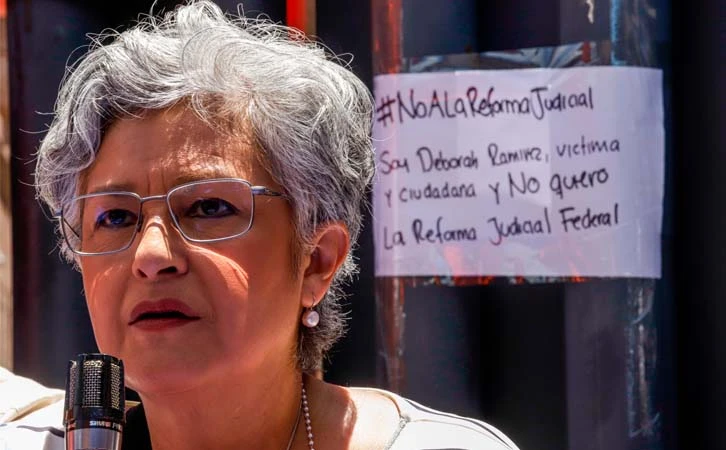 #NoALaReformaJudicial
Soy Deborah Ramirez, victima
y ciudadana y No quiero
La Reforma Judicial Federal
SHURE